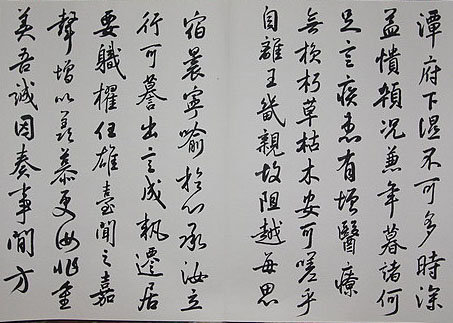 潭府下濕不可多時深
益憒顇況兼年暮諸何
足言疾患有增醫療
無損朽草枯木安可嗟乎
自離王畿親故阻越每思
宿晨寧喻於心承汝立
行可譽出言成軌遷居
要職櫂任雄臺聞之嘉
聲增以羨慕更汝非重
美吾誠因奏事間方